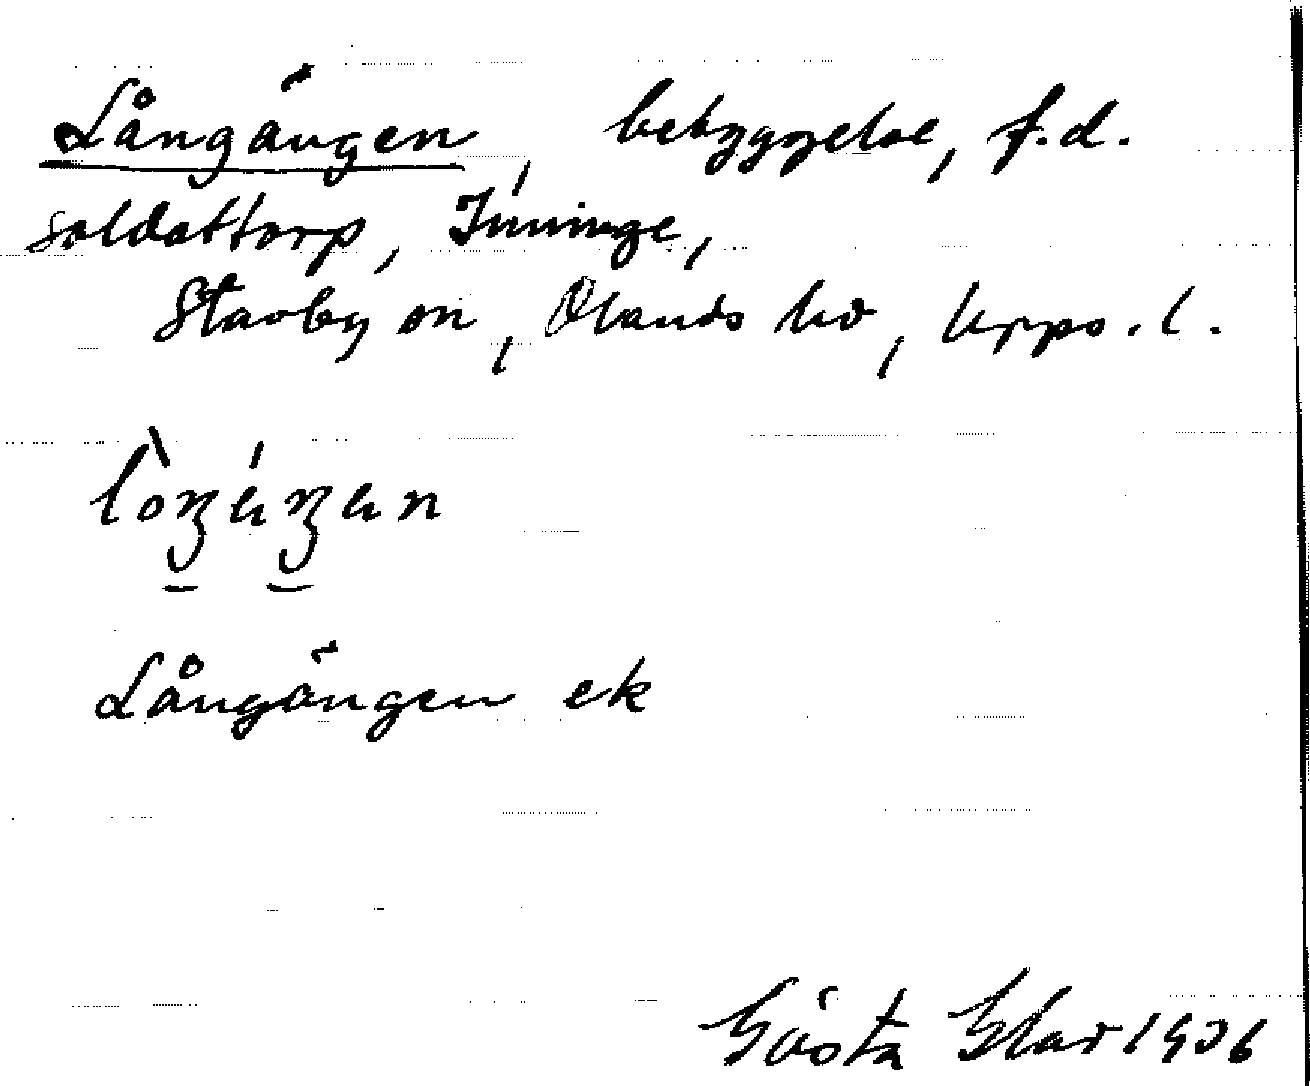 Långängen, bebyggelse, f.d.
soldattorp, Inninge,
Stavby sn, Olands hd, Upps. l.
Långängen ek
Gösta Elar 1936